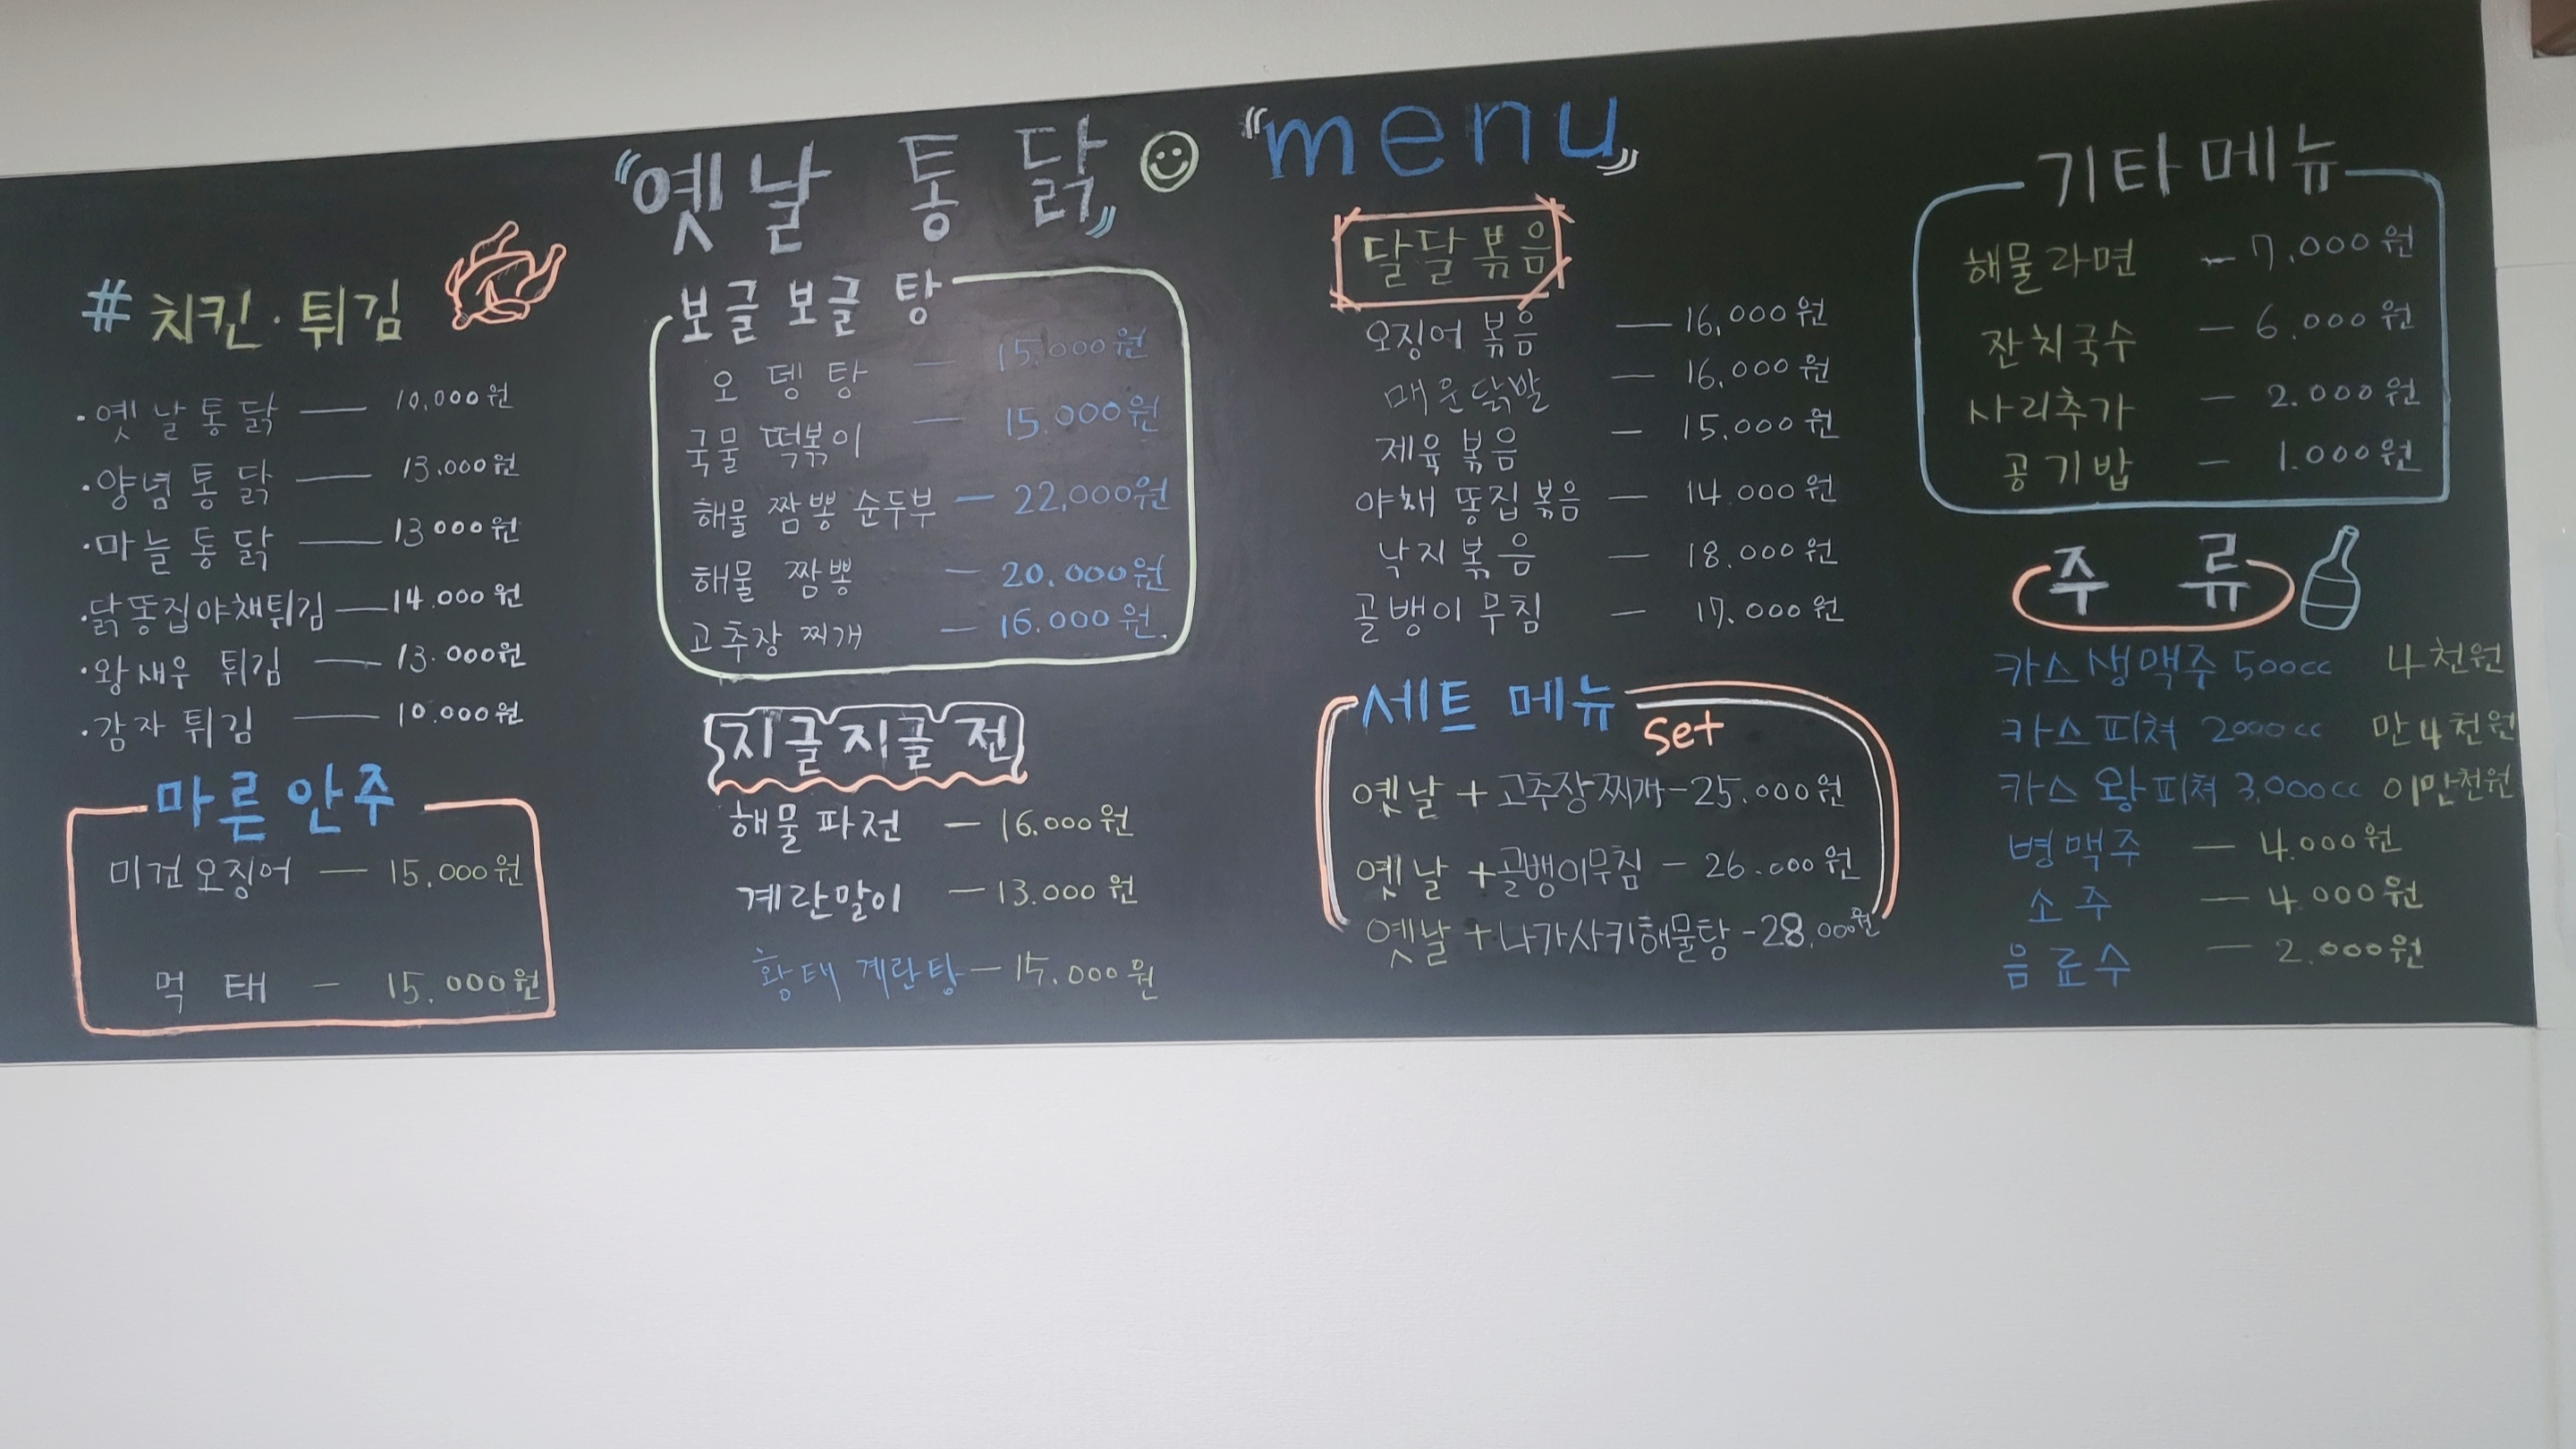 "옛날 통닭" "menu"
# 치킨·튀김
·옛날통닭 — 10,000원
·양념통닭 — 13,000원
·마늘통닭 — 13000원
·닭똥집야채튀김 — 14.000원
·왕새우 튀김 — 13.000원
·감자 튀김 — 10.000원
마른안주
미건오징어 — 15,000원
먹태 — 15.000원
보글보글 탕
오뎅탕 — 15.000원
국물 떡볶이 — 15.000원
해물 짬뽕 순두부 — 22,000원
해물 짬뽕 — 20.000원
고추장 찌개 — 16.000원.
지글지글 전
해물파전 — 16.000원
계란말이 — 13.000원
황태계란탕 — 15.000원
달달볶음
오징어 볶음 — 16,000원
매운닭발 — 16,000원
제육볶음 — 15,000원
야채 똥집볶음 — 14.000원
낙지볶음 — 18.000원
골뱅이 무침 — 17.000원
세트 메뉴
set
옛날 + 고추장찌개 - 25.000원
옛날 + 골뱅이무침 - 26.000원
옛날 + 나가사키해물탕 - 28,000원
기타메뉴
해물라면 — 7,000원
잔치국수 — 6.000원
사리추가 — 2.000원
공기밥 — 1.000원
주류
카스생맥주 500cc 4천원
카스피쳐 2000cc 만4천원
카스왕피쳐 3,000cc 이만천원
병맥주 — 4.000원
소주 — 4.000원
음료수 — 2.000원